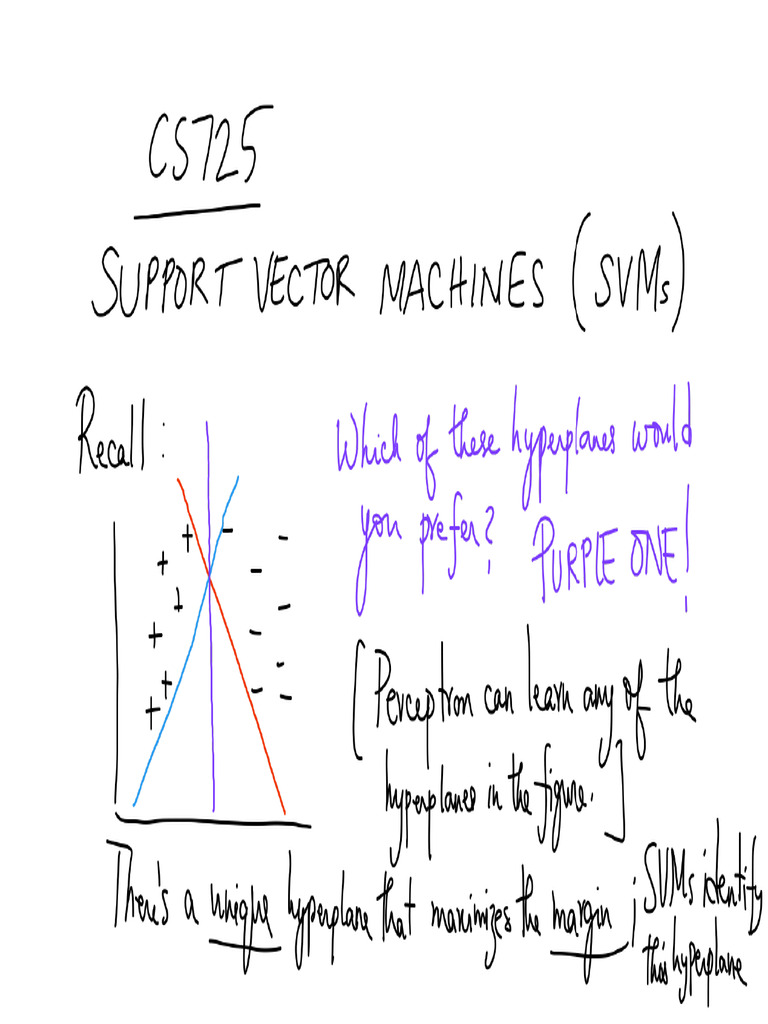 CS725
SUPPORT VECTOR MACHINES (SVMs)
Recall :
Which of these hyperplanes would
you prefer? PURPLE ONE!
[Perceptron can learn any of the
hyperplanes in the figure.]
There's a unique hyperplane that maximizes the margin ; SVMs identify
this hyperplane